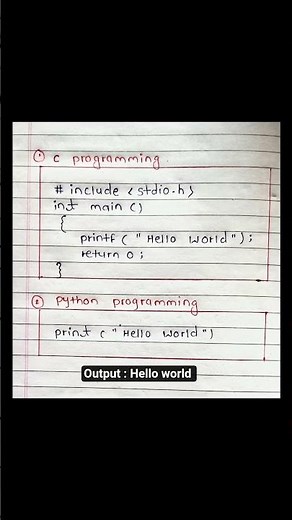 ① C programming.
# include <stdio.h>
int main ()
{
printf ( " Hello World " ) ;
return 0 ;
}
② Python programming
print ( " Hello World " )
Output : Hello world